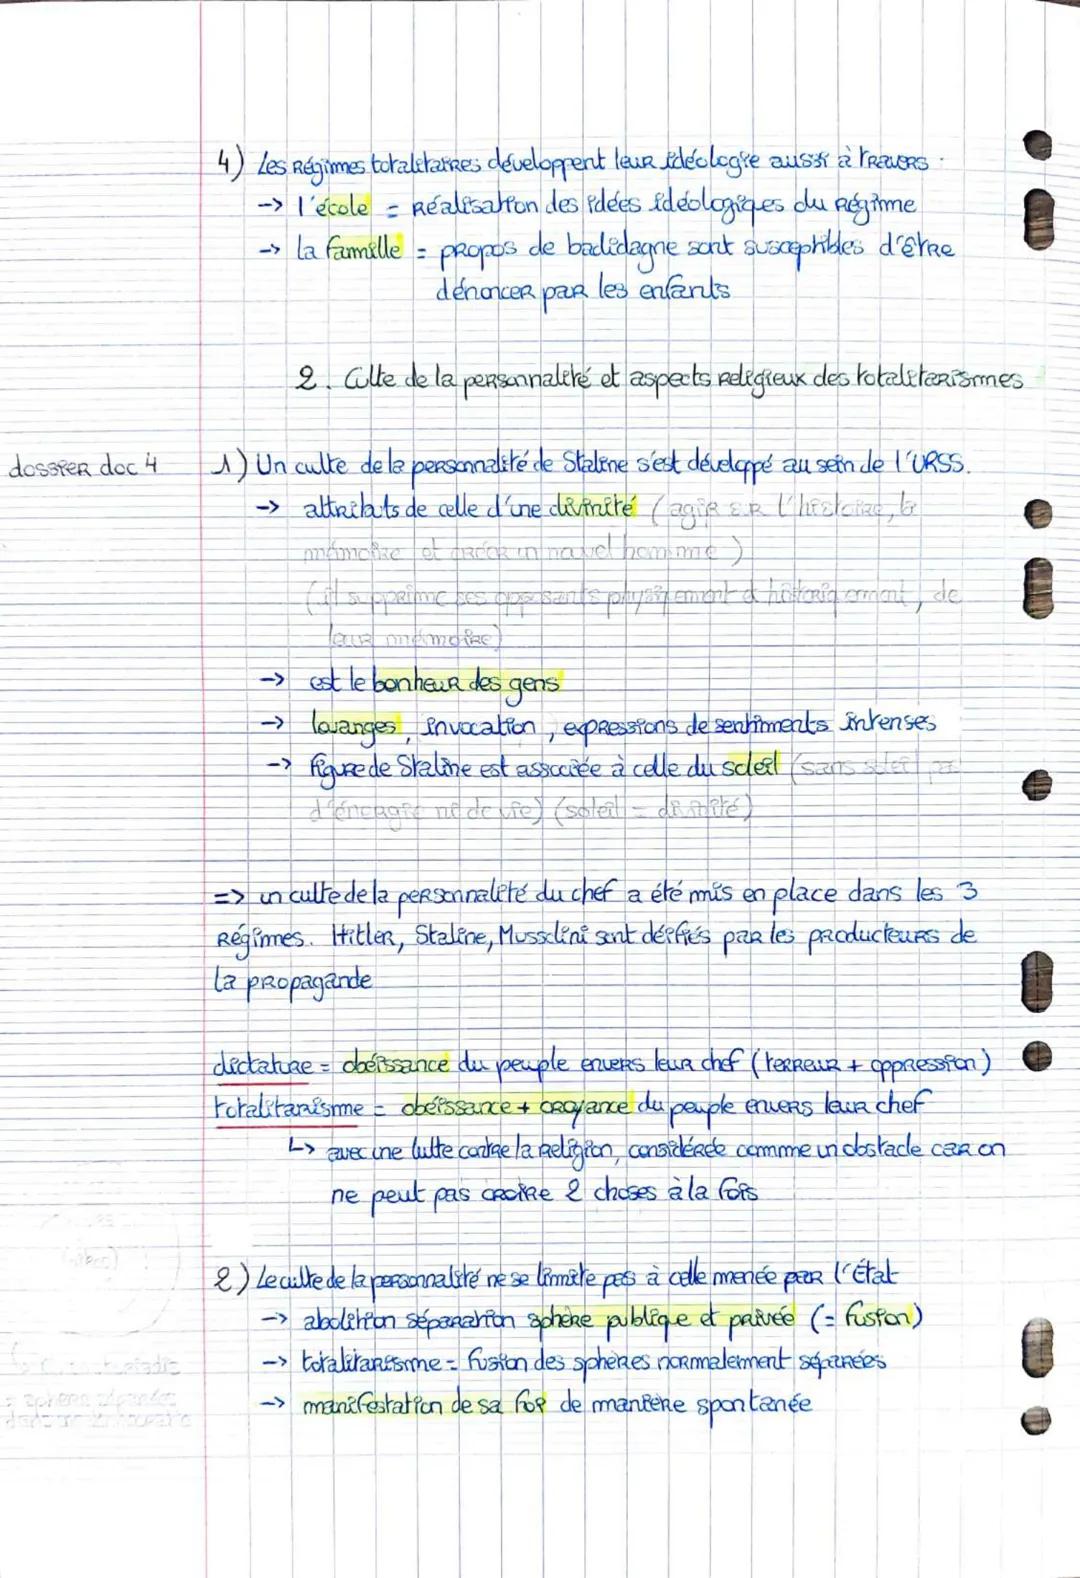 4) Les Régimes totalitaires développent leur idéologie aussi à travers :
-> l'école = Réalisation des idées idéologiques du Régime
-> la famille = propos de badidagne sont susceptibles d'être
dénoncer par les enfants
2. Culte de la personnalité et aspects Religieux des totalitarismes
dossier doc 4
1) Un culte de la personnalité de Staline s'est développé au sein de l'URSS.
-> attributs de celle d'une divinité (agir sur l'histoire, la
mémoire et créer un nouvel homme)
(il supprime ses opposants physiquement et historiquement, de
leur mémoire)
-> est le bonheur des gens
-> louanges, invocation, expressions de sentiments intenses
-> figure de Staline est associée à celle du soleil (sans soleil pas
d'énergie ni de vie) (soleil = divinité)
=> un culte de la personnalité du chef a été mis en place dans les 3
Régimes. Hitler, Staline, Mussolini sont déifiés par les producteurs de
la propagande
dictature = obéissance du peuple envers leur chef (terreur + oppression)
totalitarisme = obéissance + croyance du peuple envers leur chef
↳ avec une lutte contre la Religion, considérée comme un obstacle car on
ne peut pas croire 2 choses à la fois
2) Le culte de la personnalité ne se limite pas à celle menée par l'État
-> abolition séparation sphère publique et privée (= fusion)
-> totalitarisme = fusion des sphères normalement séparées
-> manifestation de sa foi de manière spontanée